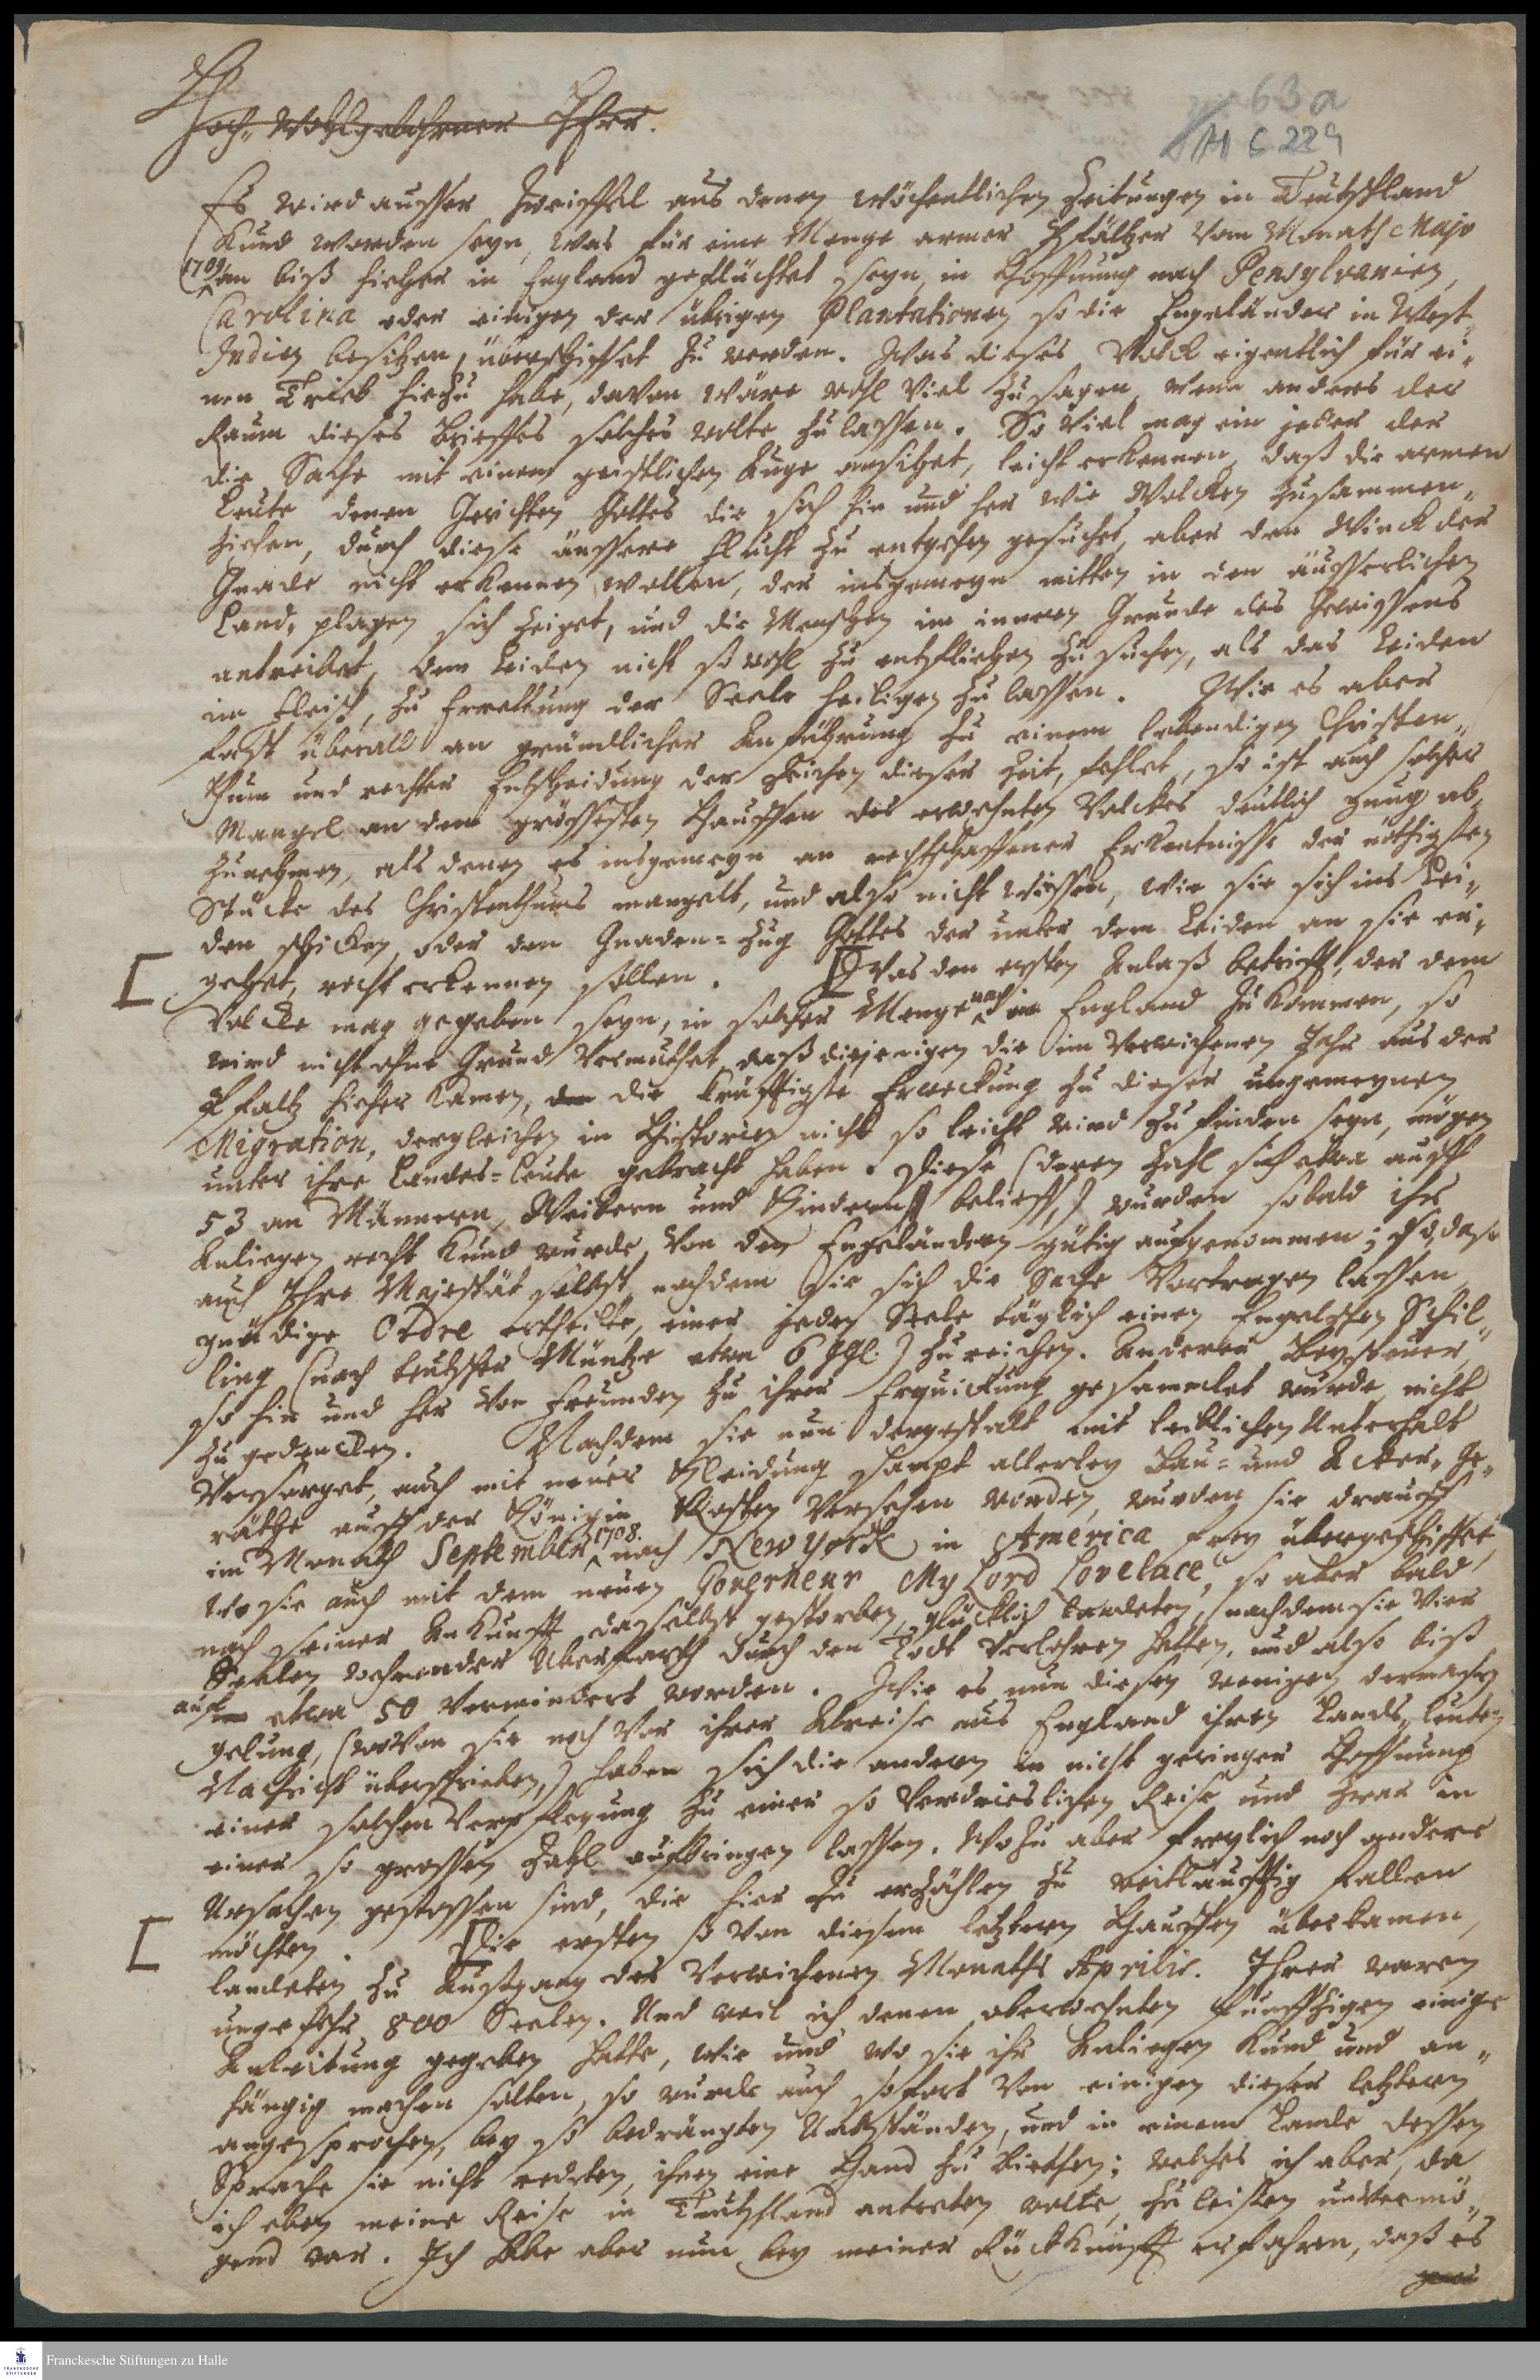 63a
H C 229
Hoch-Wohlgebohrner Herr.
Es wird ausser Zweiffel aus denen wöchentlichen Zeitungen in Teutschland
kund worden seyn, was für eine Menge armer Pfältzer vom Monath Majo
1709. an biß hieher in England geflüchtet seyn, in Hoffnung nach Pensylvanien,
Carolina oder einigen der übrigen Plantationen so die Engeländer in West-
Indien besitzen, überschiffet zu werden. Was dieses Volck eigentlich für ei-
nen Trieb hiezu habe, davon wäre wohl viel zu sagen, wenn anders der
Raum dieses Brieffes solches wolte zulassen. So viel mag ein jeder der
die Sache mit einem geistlichen Auge ansihet, leicht erkennen, daß die armen
Leute denen Gerichten Gottes die sich hin und her wie Wolcken zusammen-
ziehen, durch diese äussere Flucht zu entgehen gesuchet, aber den Winck der
Gnade nicht erkennen wollen, der insgemeyn mitten in den äusserlichen
Land-plagen sich zeiget, und die Menschen im innern Grunde des Gewissens
antreibet, dem Leiden nicht so wohl zu entfliehen zu suchen, als das Leiden
im Fleisch, zu Errettung der Seele heiligen zu lassen. Wie es aber
fast überall an gründlicher Anführung zu einem lebendigen Christen-
thum und rechter Entscheidung der Zeichen dieser Zeit, fehlet, so ist auch solcher
Mangel an dem grössesten Hauffen des erwehnten Volckes deutlich gnug ab-
zunehmen, als denen es insgemeyn an rechtschaffener Erkentnisse der nöthigsten
Stücke des Christenthums mangelt, und also nicht wissen, wie sie sich ins Lei-
den schicken, oder den Gnaden-Zug Gottes der unter dem Leiden an sie er-
gehet, recht erkennen sollen. [Was den ersten Anlaß betrifft, der dem
Volcke mag gegeben seyn, in solcher Menge nach in England zu kommen, so
wird nicht ohne Grund vermuthet, daß diejenigen die im verwichenen Jahr aus der
Pfaltz hieher kamen, den die kräfftigste Erweckung zu dieser ungemeynen
Migration, dergleichen in Historien nicht so leicht wird zu finden seyn, mögen
unter ihre Landes-Leute gebracht haben. Diese (deren Zahl sich etwa auff
53 an Männern, Weibern und Kindern belieff,) wurden sobald ihr
Anliegen recht kund wurde, von den Engeländern gütig aufgenommen; so, daß
auch Ihre Majestät selbst, nachdem sie sich die Sache vortragen lassen,
gnädige Ordre ertheilte, einer jeden Seele täglich einen Englischen Schil-
ling (nach teutscher Müntze etwa 6 ggl.) zu reichen. Anderer Beysteuer,
so hin und her von Freunden zu ihrer Erquickung gesammlet wurde, nicht
zu gedencken. Nachdem sie nun dergestalt mit leiblichen Unterhalt
versorget, auch mit neuer Kleidung sampt allerley Bau- und Acker-Ge-
räthe auff der Königin Kosten versehen worden, wurden sie drauff
im Monath September 1708. nach New Yorck in America frey übergeschiffet,
wo sie auch mit dem neuen Governeur My Lord Lovelace, so aber bald
nach seiner Ankunfft daselbst gestorben, glücklich landeten, nachdem sie vier
Seelen wehrender Uberfarth durch den Todt verlohren hatten, und also biß
auf etwa 50 vermindert worden. Wie es nun diesen wenigen dermassen
gelung, (wovon sie noch vor ihrer Abreise aus England ihren Lands-Leuten
Nachricht überschrieben,) haben sich die andern in nicht geringer Hoffnung
einer solchen Verpflegung zu einer so verdrieslichen Reise und zwar in
einer so grossen Zahl auffbringen lassen. Wozu aber freylich noch andere
Ursachen gestossen sind, die hier zu erzählen zu weitläufftig fallen
möchten. [Die ersten so von diesem letztern Hauffen überkamen,
landeten zu Außgang des verwichenen Monaths Aprilis. Ihrer waren
ungefehr 800 Seelen. Und weil ich denen oberwehnten funffzigen einige
Anleitung gegeben hatte, wie und wo sie ihr Anliegen kund und an-
hängig machen solten, so wurde auch sofort von einigen dieser letztern
angesprochen, bey so bedrängten Umbständen, und in einem Lande dessen
Sprache sie nicht redeten, ihnen eine Hand zu biethen; welches ich aber, da
ich eben meine Reise in Teutschland antreten wolte, zu leisten unvermö-
gend war. Ich habe aber nun bey meiner Rückkunfft erfahren, daß es
Franckesche Stiftungen zu Halle